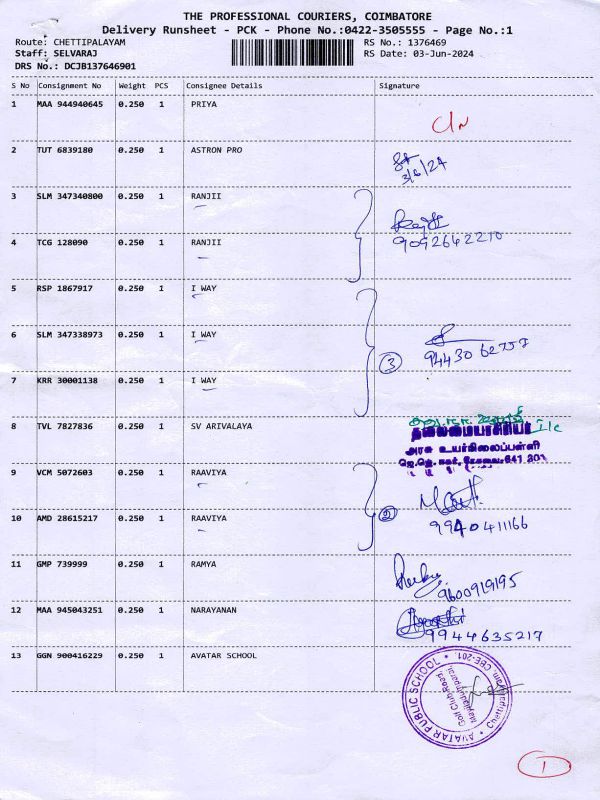 THE PROFESSIONAL COURIERS, COIMBATORE
Delivery Runsheet - PCK - Phone No.:0422-3505555 - Page No.:1
Route: CHETTIPALAYAM RS No.: 1376469
Staff: SELVARAJ RS Date: 03-Jun-2024
DRS No.: DCJB137646901
S No Consignment No Weight PCS Consignee Details Signature
1 MAA 944940645 0.250 1 PRIYA
2 TUT 6839180 0.250 1 ASTRON PRO
3/6/24
3 SLM 347340800 0.250 1 RANJII
4 TCG 128090 0.250 1 RANJII
9092642210
5 RSP 1867917 0.250 1 I WAY
6 SLM 347338973 0.250 1 I WAY
3
7 KRR 30001138 0.250 1 I WAY
8 TVL 7827836 0.250 1 SV ARIVALAYA
தலைமையாசிரியர்
அரசு உயர்நிலைப்பள்ளி
9 VCM 5072603 0.250 1 RAAVIYA
2
10 AMD 28615217 0.250 1 RAAVIYA
9940411166
11 GMP 739999 0.250 1 RAMYA
9600919195
12 MAA 945043251 0.250 1 NARAYANAN
9944635217
13 GGN 900416229 0.250 1 AVATAR SCHOOL
AVATAR PUBLIC SCHOOL
Golf Club Road,
1